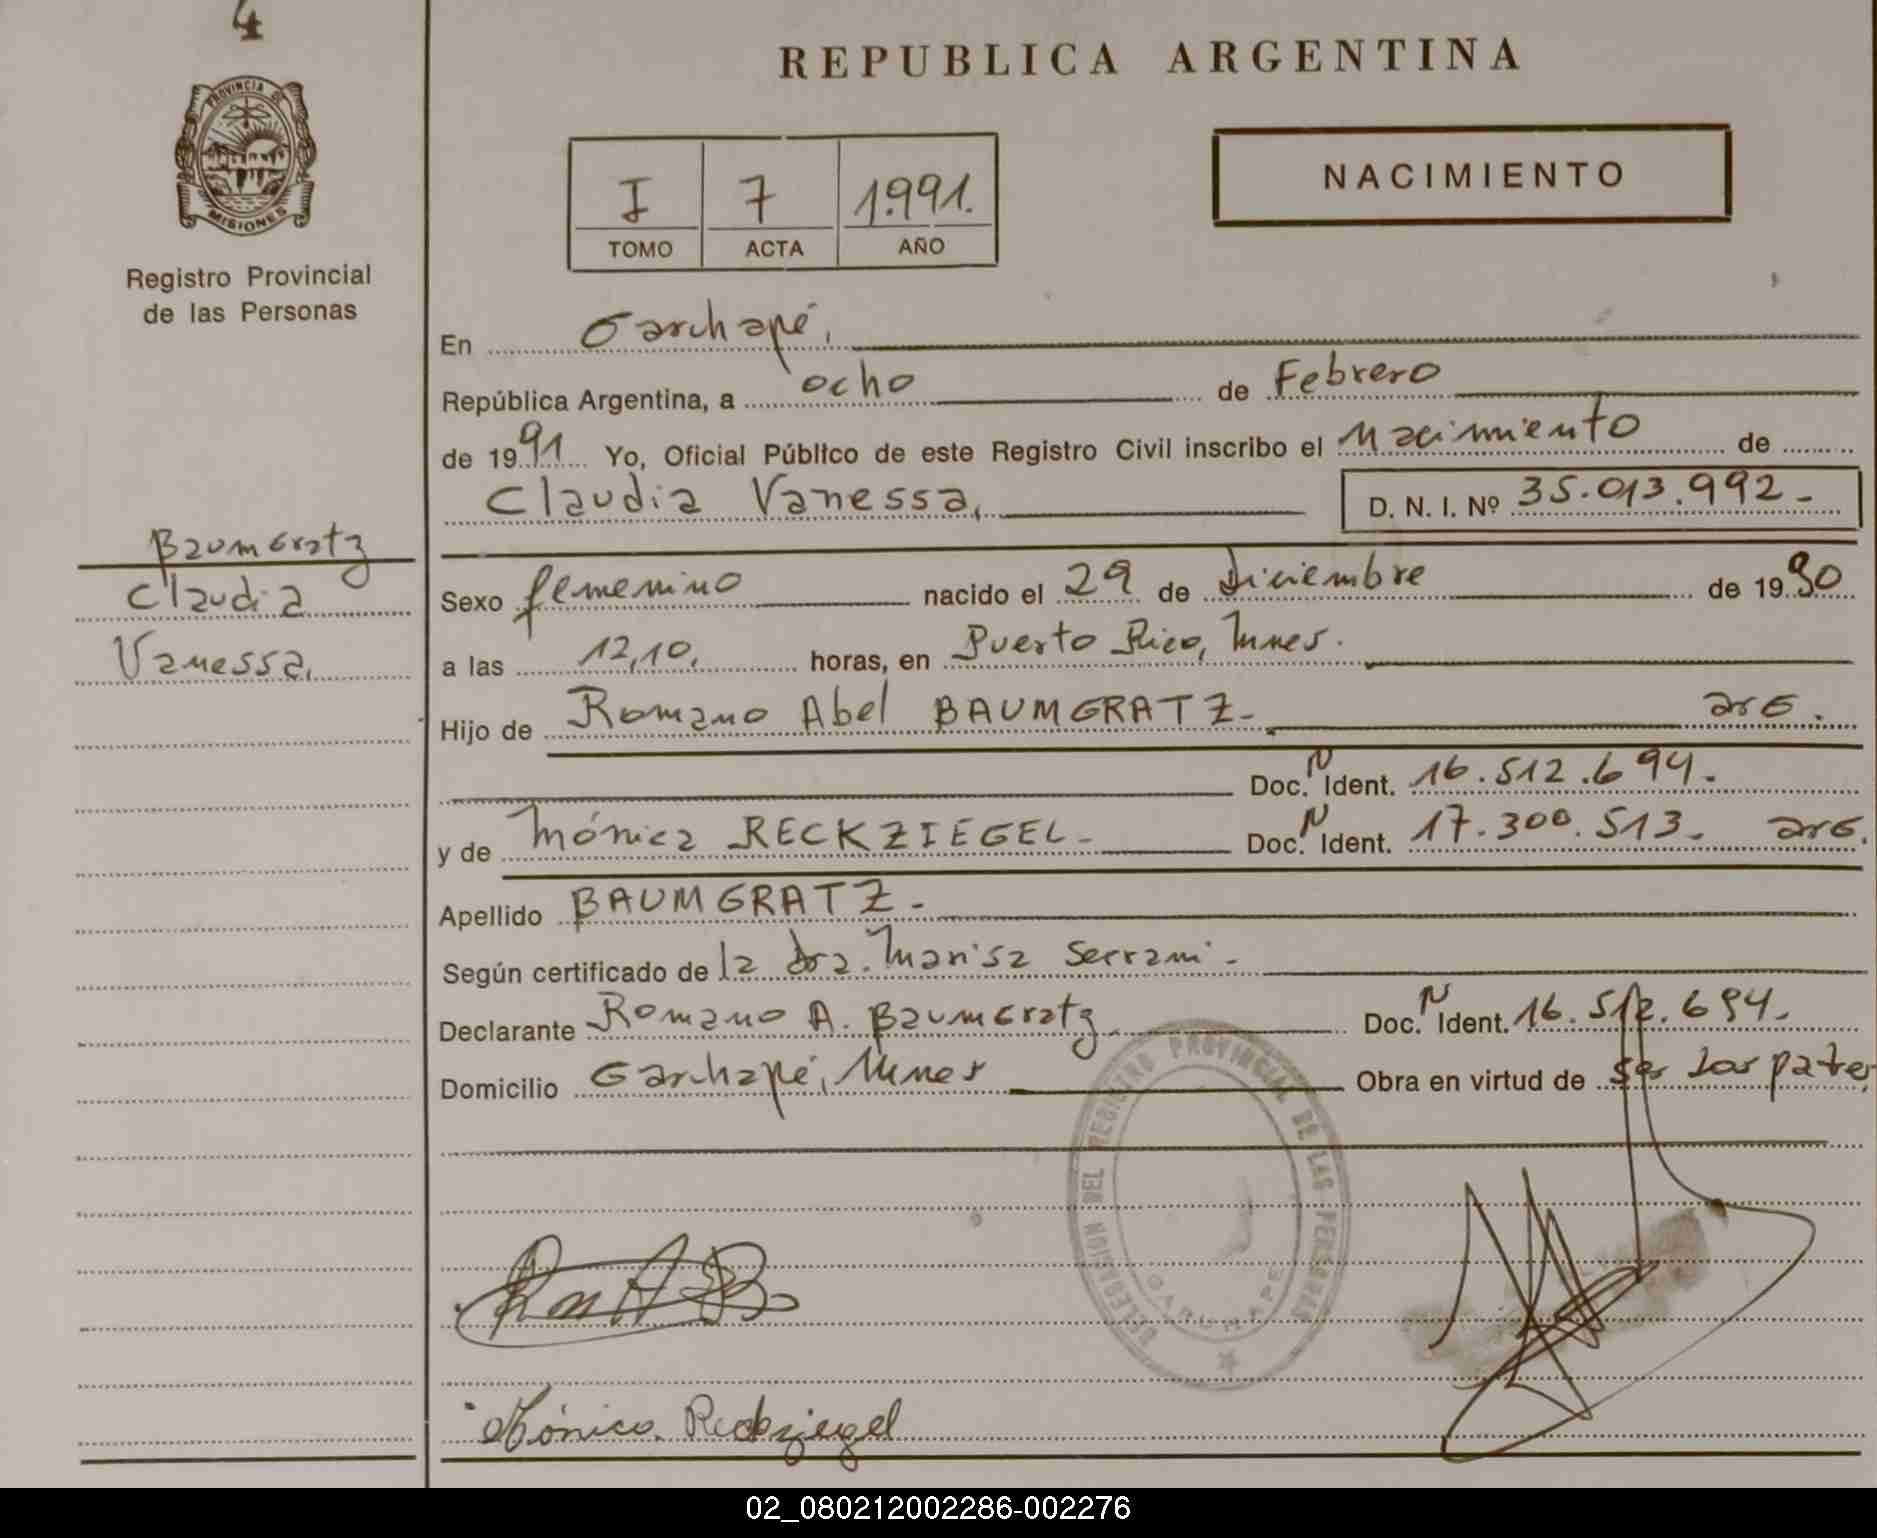 4
PROVINCIA DE
MISIONES
Registro Provincial
de las Personas
Baumgratz
Claudia
Vanessa.
REPUBLICA ARGENTINA
NACIMIENTO
I 7 1.991.
TOMO ACTA AÑO
En Garuhapé,
República Argentina, a ocho de Febrero
de 1991 Yo, Oficial Público de este Registro Civil inscribo el Nacimiento de
Claudia Vanessa, D. N. I. Nº 35.013.992-
Sexo femenino nacido el 29 de Diciembre de 1990
a las 12,10, horas, en Puerto Rico, Mnes.
Hijo de Romano Abel BAUMGRATZ- arg.
Doc. N Ident. 16.512.694.
y de Mónica RECKZIEGEL- Doc. N Ident. 17.300.513. arg.
Apellido BAUMGRATZ-
Según certificado de la dra. Marisa Serrani-
Declarante Romano A. Baumgratz Doc. N Ident. 16.512.694.
Domicilio Garuhapé, Mnes Obra en virtud de ser los padres
DELEGACION DEL REGISTRO PROVINCIAL DE LAS PERSONAS
GARUHAPE
Mónica Reckziegel
02_080212002286-002276